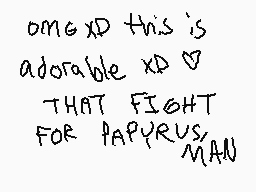 omG XD this is
adorable XD ♡
THAT FIGHT
FOR PAPYRUS,
MAN